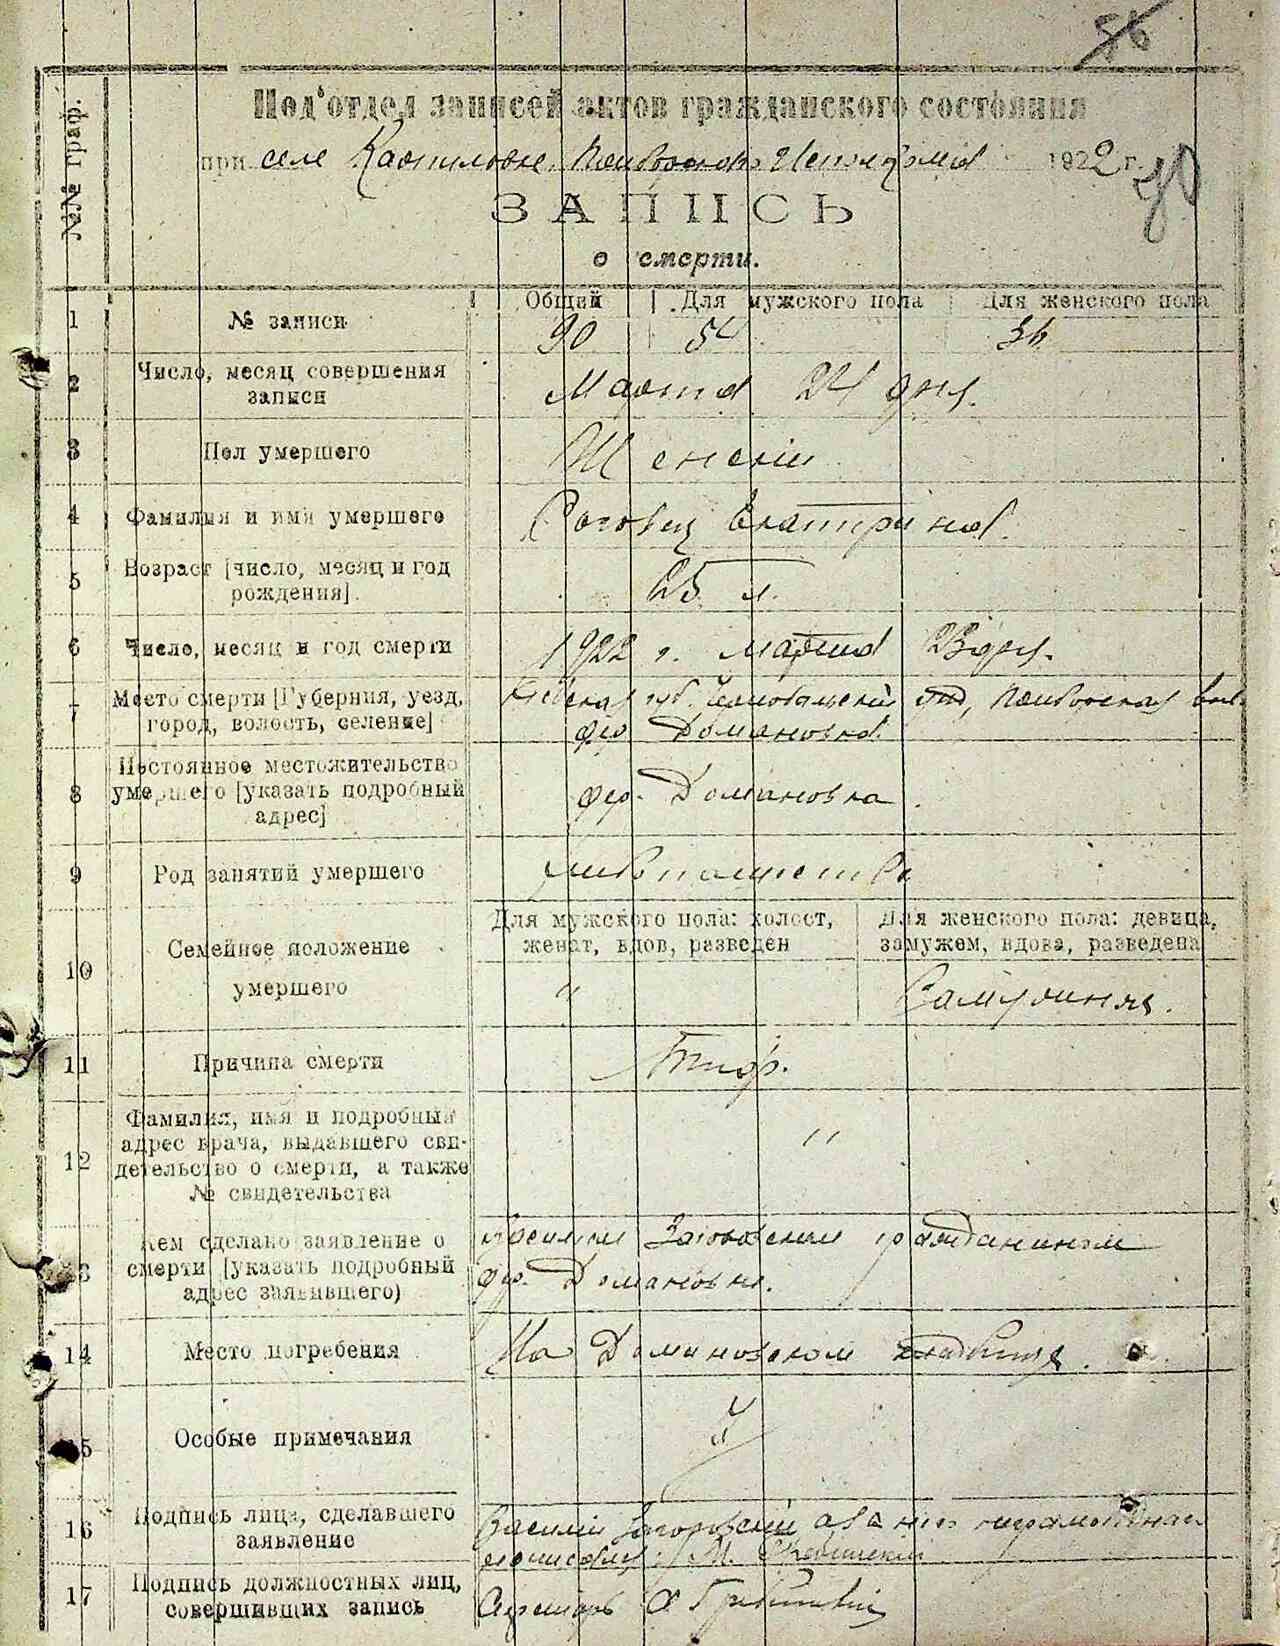 56
№№ граф.
Под'отдел записей актов гражданского состояния
при селе Исполкома 1922 г.
40
ЗАПИСЬ
о смерти.
Общий Для мужского пола Для женского пола
1 № записи 90 54 36
2 Число, месяц совершения
записи Марта 24 дня.
3 Пол умершего Женский
4 Фамилия и имя умершего Роговец Екатерина.
5 Возраст [число, месяц и год
рождения]. 25 л.
6 Число, месяц и год смерти 1922 г. марта 23 дня.
7 Место смерти [Губерния, уезд, Киевская губ. Чернобыльский уезд, вол.
город, волость, селение] дер. Домановка.
8 Постоянное местожительство
умершего [указать подробный дер. Домановка.
адрес]
9 Род занятий умершего
Для мужского пола: холост, Для женского пола: девица,
женат, вдов, разведен замужем, вдова, разведена
10 Семейное положение
умершего "
11 Причина смерти Тиф.
12 Фамилия, имя и подробный
адрес врача, выдавшего сви- "
детельство о смерти, а также
№ свидетельства
13 Кем сделано заявление о гражданином
смерти [указать подробный дер. Домановки.
адрес заявившего)
14 Место погребения На Домановском кладбище.
15 Особые примечания
16 Подпись лица, сделавшего Василий Загоровский а за него неграмотного
заявление М.
17 Подпись должностных лиц,
совершивших запись Секретарь